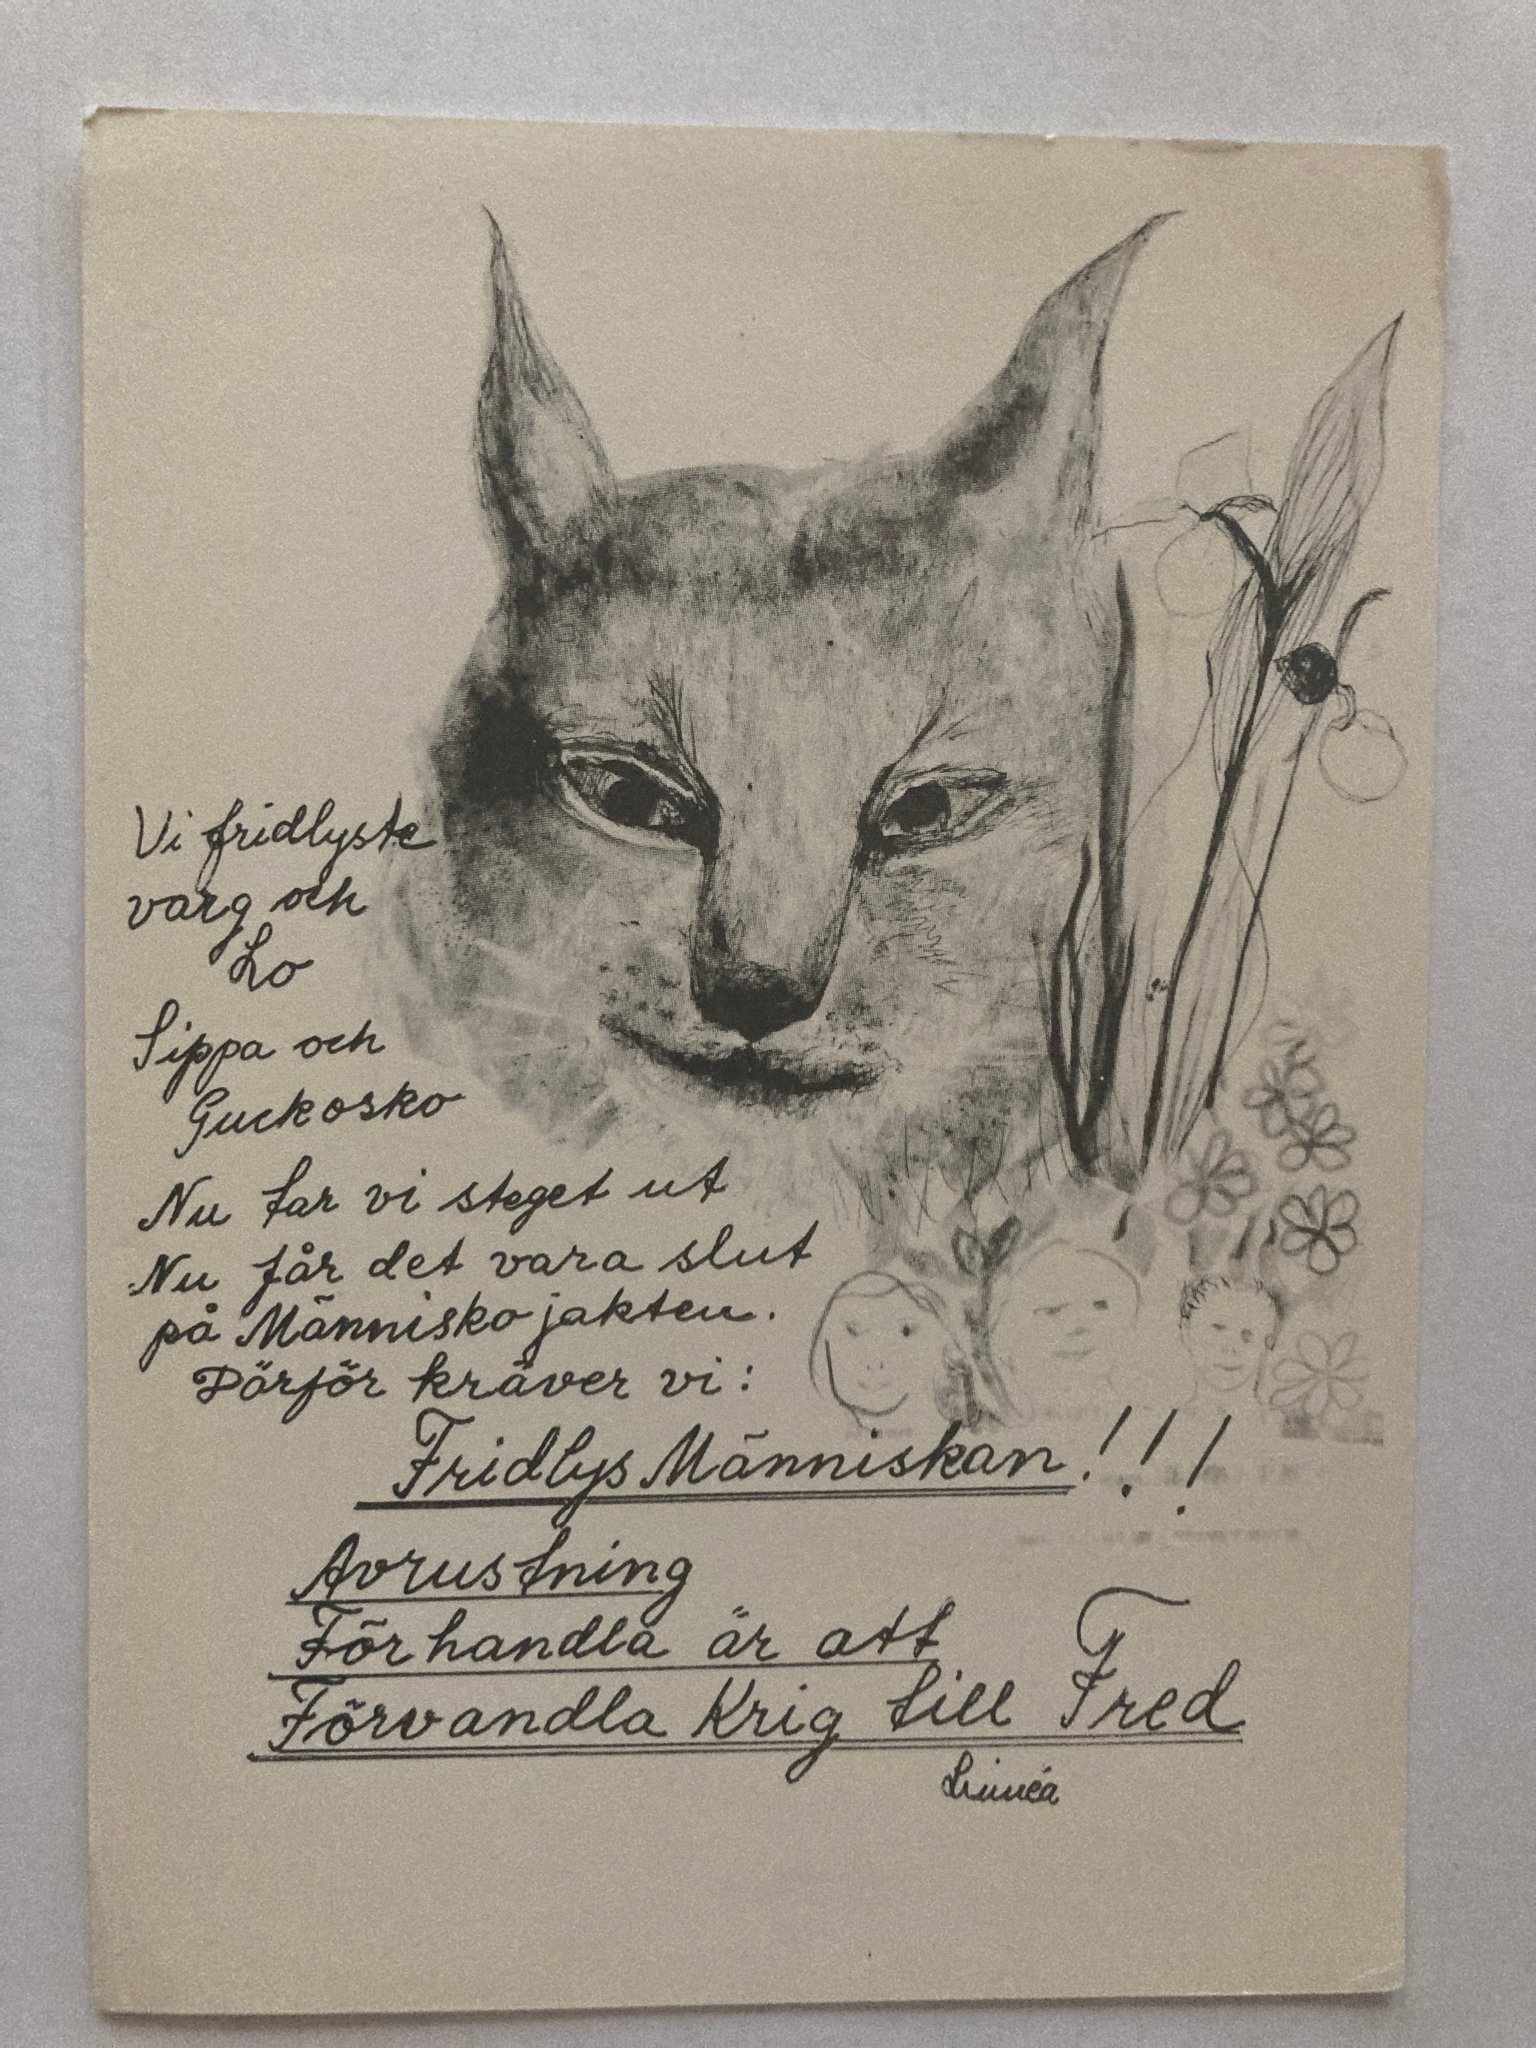 Vi fridlyste
varg och
Lo
Sippa och
Guckosko
Nu tar vi steget ut
Nu får det vara slut
på Människojakten.
Därför kräver vi:
Fridlys Människan!!!
Avrustning
Förhandla är att
Förvandla Krig till Fred
Linnéa